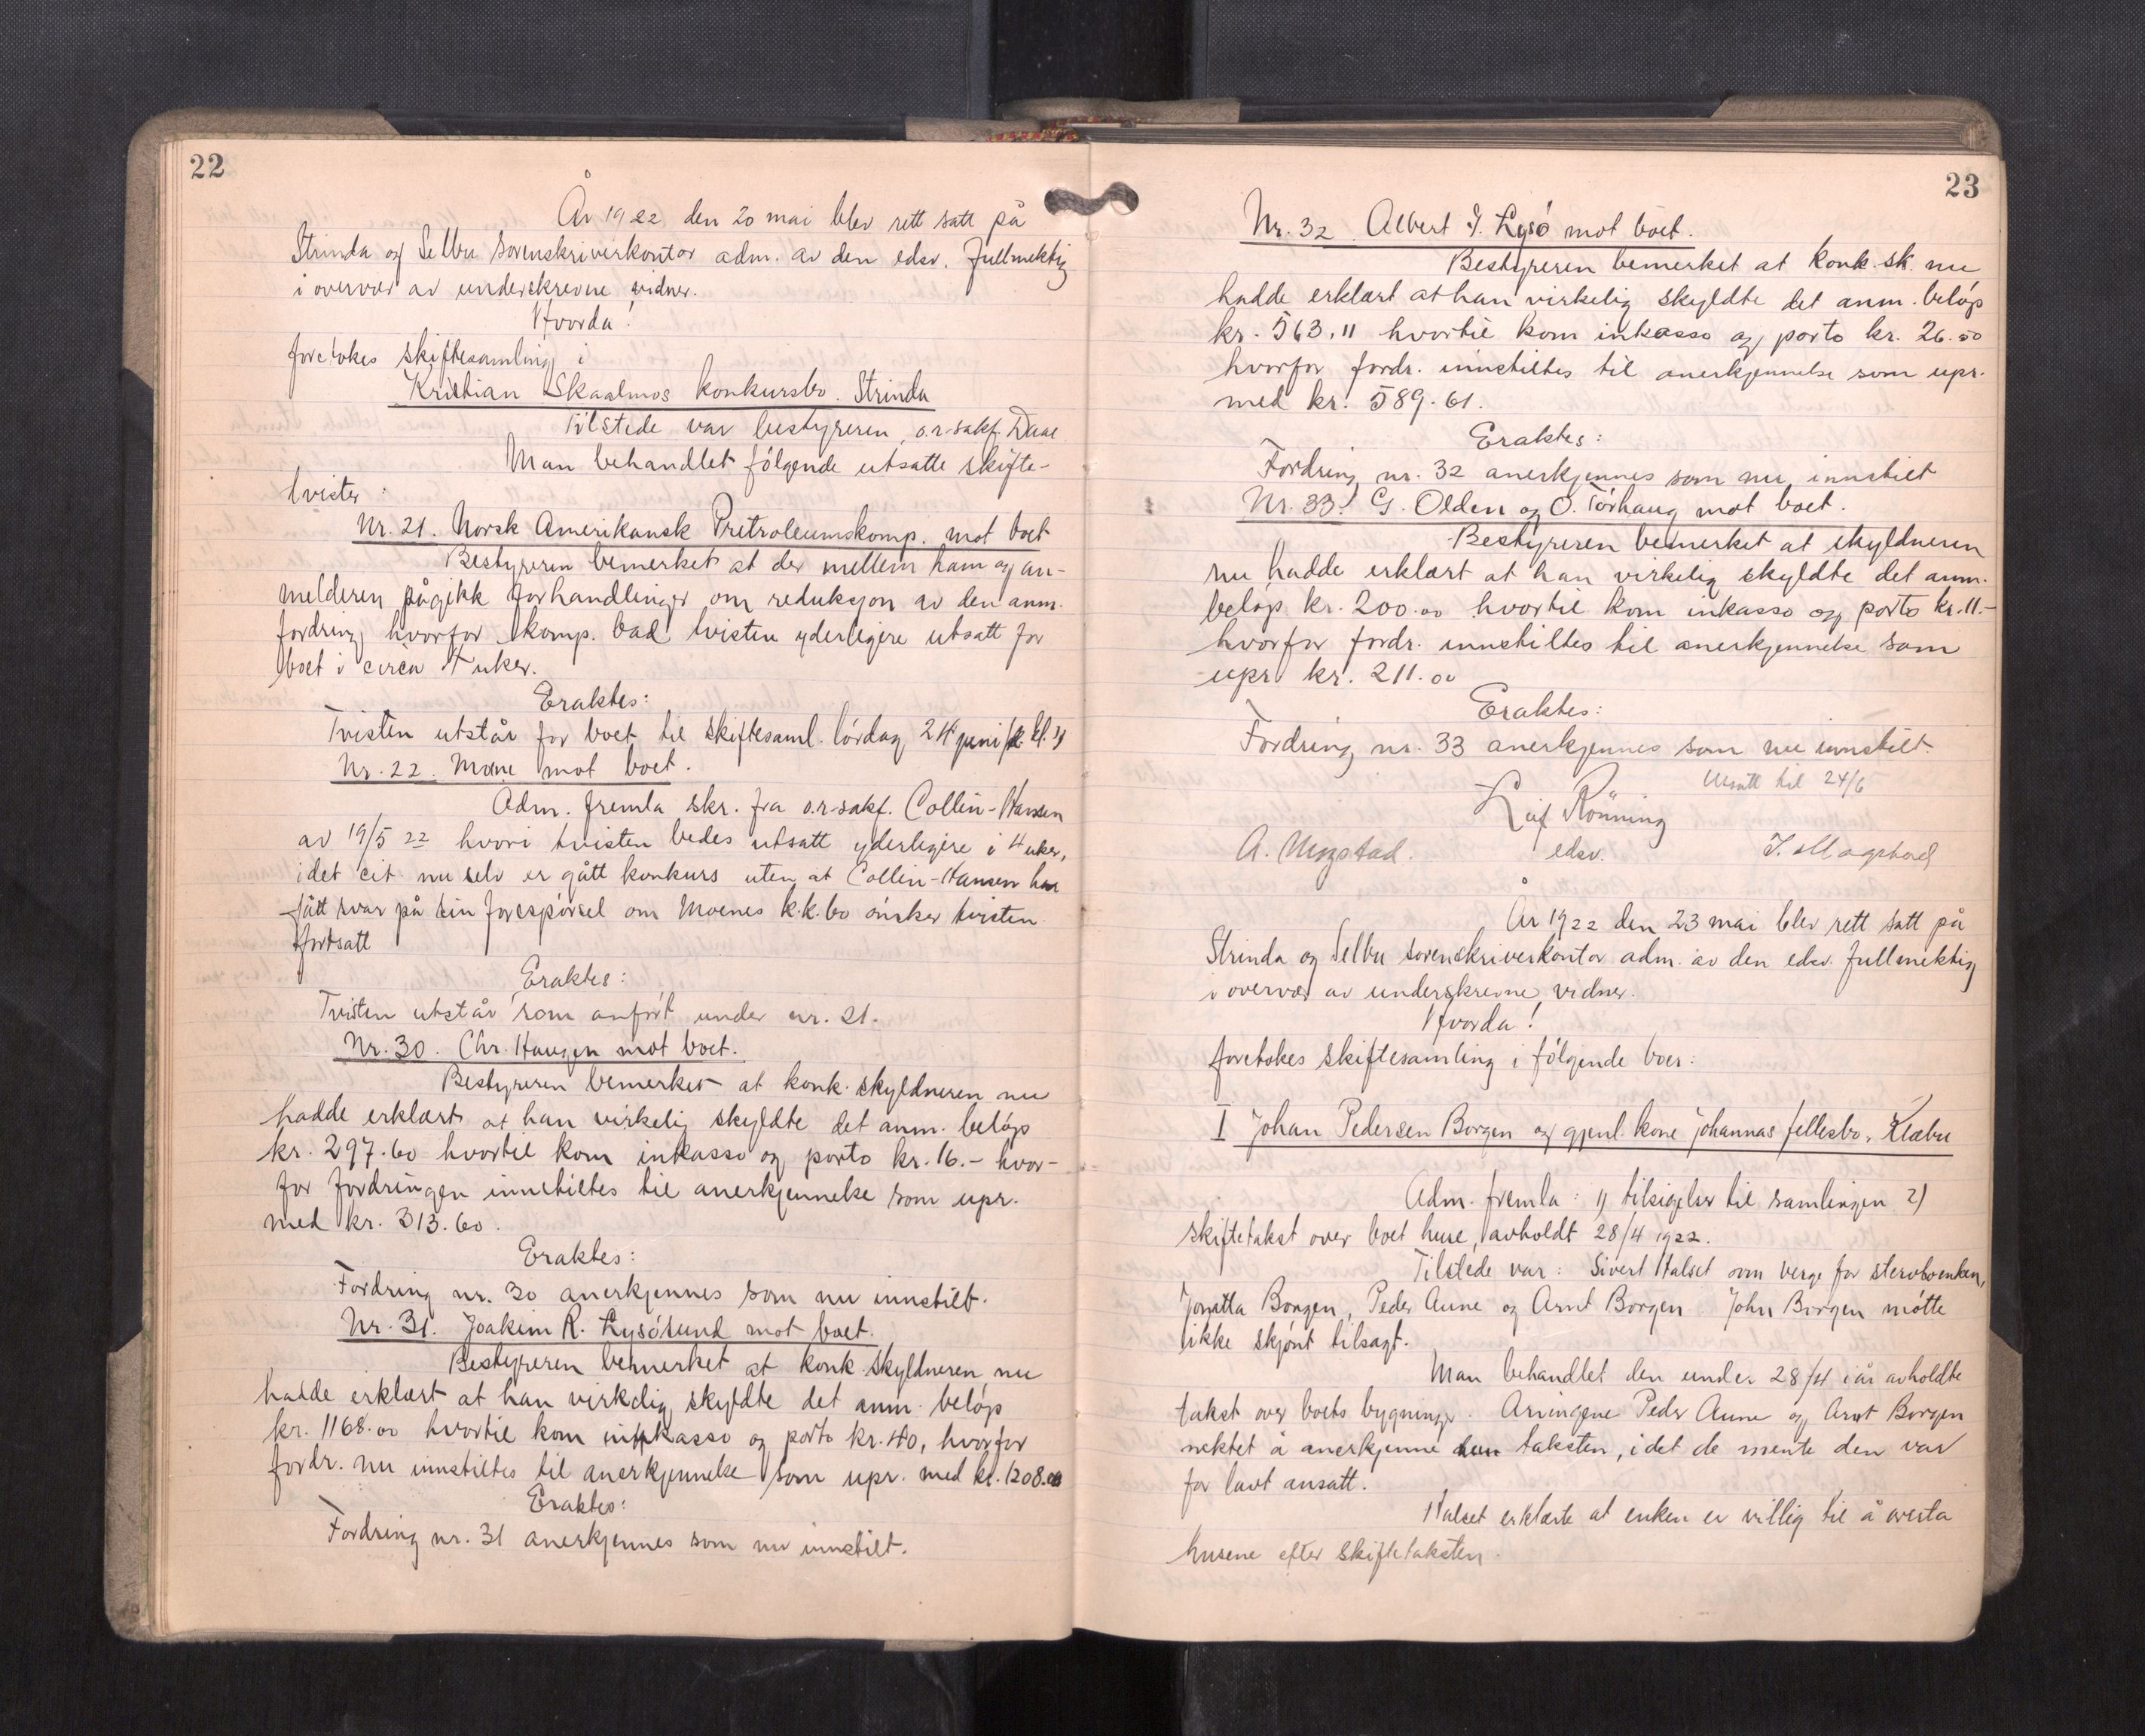 22
År 1922 den 20 mai blev rett satt på
Strinda og Selbu sorenskriverkontor adm. av den edsv. fullmektig
i overvær av underskrevne vidner.
Hvorda!
foretokes skiftesamling i
Kristian Skaalmos konkursbo. Strinda
Tilstede var bestyreren, o.r.sakf. Daae
Man behandlet følgende utsatte skifte-
tvister:
Nr. 21. Norsk Amerikansk Pretroleumskomp. mot boet
Bestyreren bemerket at der mellem ham og an-
melderen pågikk forhandlinger om reduksjon av den anm.
fordring hvorfor komp. bad tvisten yderligere utsatt for
boet i circa 4 uker.
Eraktes:
Tvisten utstår for boet til skiftesaml. lørdag 24 juni kl. 1
Nr. 22. Moene mot boet.
Adm. fremla skr. fra o.r.sakf. Collin-Hansen
av 19/5 22 hvori tvisten bedes utsatt yderligere i 4 uker,
idet cit. nu selv er gått konkurs uten at Collin-Hansen har
fått svar på sin forespørsel om Moenes k.k.bo ønsker tvisten
fortsatt
Eraktes:
Tvisten utstår som anført under nr. 21.
Nr. 30. Chr. Haugen mot boet.
Bestyreren bemerket at konk. skyldneren nu
hadde erklært at han virkelig skyldte det anm. beløp
kr. 297.60 hvortil kom inkasso og porto kr. 16.- hvor-
for fordringen innstiltes til anerkjennelse som upr.
med kr. 313.60.
Eraktes:
Fordring nr. 30 anerkjennes som nu innstilt.
Nr. 31. Joakim R. Lysøsund mot boet.
Bestyreren bemerket at konk. skyldneren nu
hadde erklært at han virkelig skyldte det anm. beløp
kr. 1168.00 hvortil kom inkasso og porto kr. 40, hvorfor
fordr. nu innstiltes til anerkjennelse som upr. med kr. 1208.00
Eraktes:
Fordring nr. 31 anerkjennes som nu innstilt.
23
Nr. 32. Albert J. Lysø mot boet.
Bestyreren bemerket at konk. sk. nu
hadde erklært at han virkelig skyldte det anm. beløp
kr. 563.11 hvortil kom inkasso og porto kr. 26.50
hvorfor fordr. innstiltes til anerkjennelse som upr.
med kr. 589.61.
Eraktes:
Fordring nr. 32 anerkjennes som nu innstilt
Nr. 33. G. Olden og O. Tørhaug mot boet.
Bestyreren bemerket at skyldneren
nu hadde erklært at han virkelig skyldte det anm.
beløp kr. 200.00 hvortil kom inkasso og porto kr. 11.-
hvorfor fordr. innstiltes til anerkjennelse som
upr. kr. 211.00
Eraktes:
Fordring nr. 33 anerkjennes som nu innstilt.
Utsatt til 24/6
Leif Rönning
A. Mogstad. edsv. J. Mogstad
År 1922 den 23 mai blev rett satt på
Strinda og Selbu sorenskriverkontor adm. av den edsv. fullmektig
i overvær av underskrevne vidner.
Hvorda!
foretokes skiftesamling i følgende boer:
I Johan Pedersen Borgen og gjenl. kone Johannas fellesbo, Klæbu
Adm. fremla: 1) tilsigelser til samlingen 2)
skiftetakst over boet huse, avholdt 28/4 1922.
Tilstede var: Sivert Halset som verge for stervboenken,
Borgen, Peder Aune og Arnt Borgen. John Borgen møtte
ikke skjønt tilsagt.
Man behandlet den under 28/4 i år avholdte
takst over boets bygninger. Arvingene Peder Aune og Arnt Borgen
nektet å anerkjenne taksten, idet de mente den var
for lavt ansatt.
Halset erklærte at enken er villig til å overta
husene efter skiftetaksten.